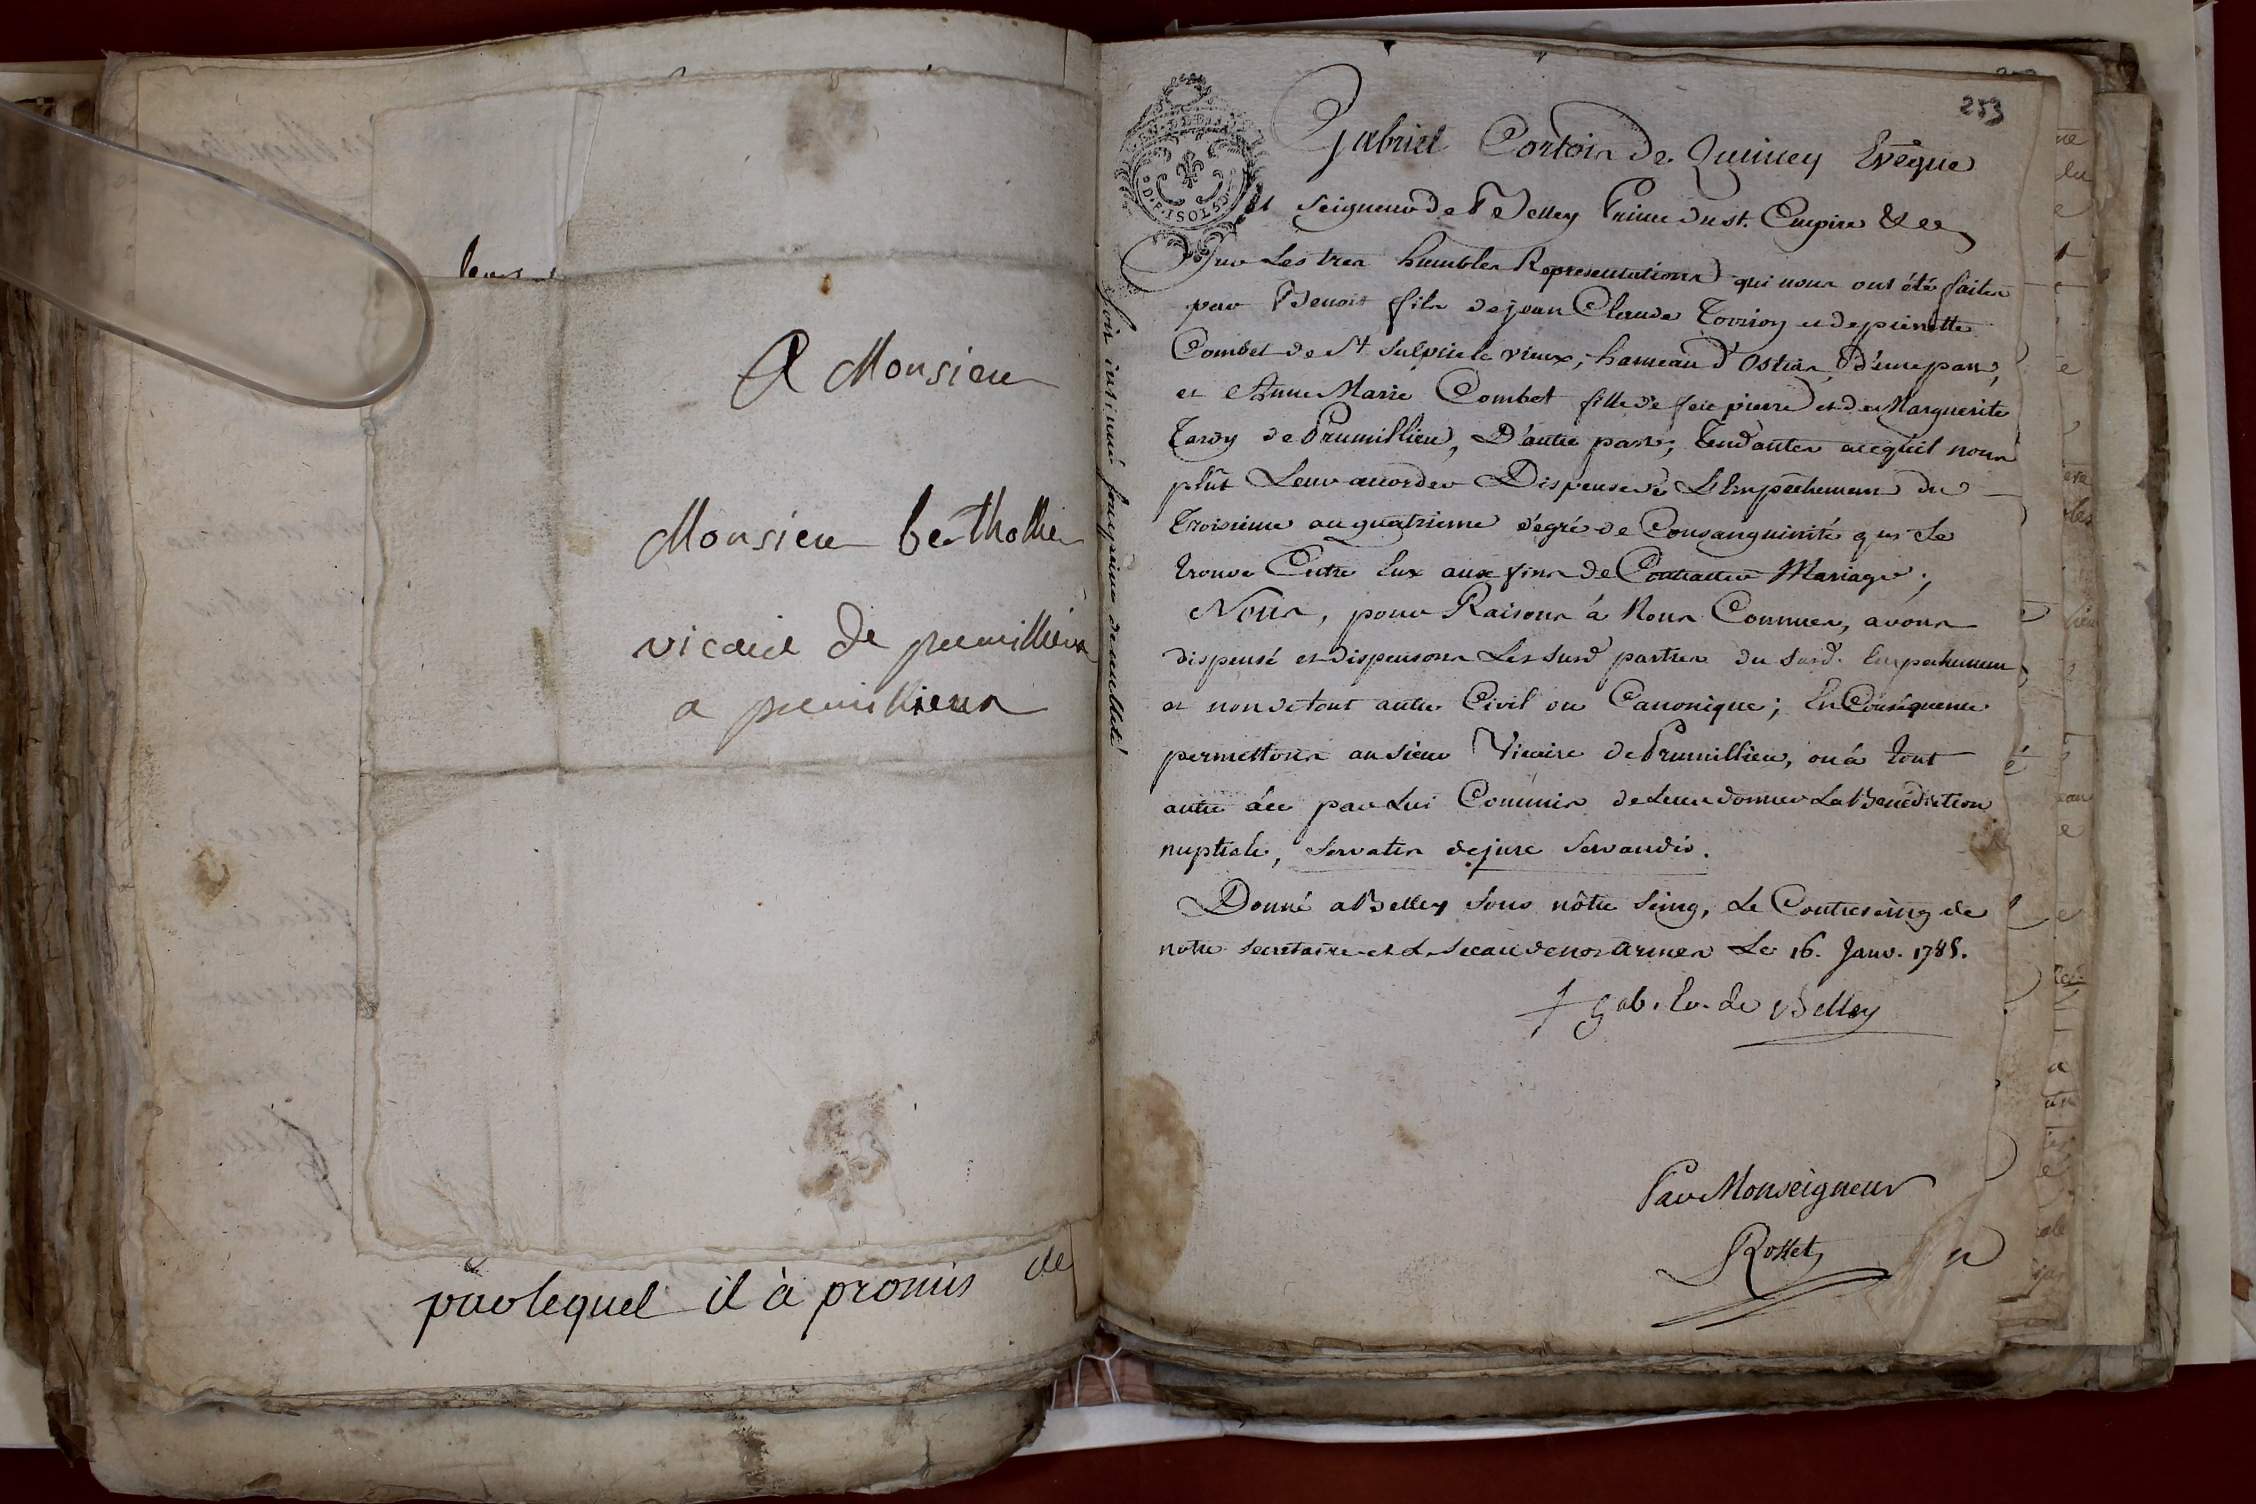 A Monsieur
Monsieur berthollier
vicaire de premillieux
a premillieux
par lequel il à promis de
253
D.P. 1 SOL 8 D.
Gabriel Cortois de Quincey Evêque
et Seigneur de Belley Prince du st. Empire &cc
Sur Les tres humbles Representations qui nous ont été faites
par Benoit fils de jean Claude Tovvion et de pierrette
Combet de St. Sulpice le vieux, hameau d'Ostian, d'une part,
et Anne Marie Combet fille de feu pierre et de Marguerite
Tardy de Prumillieu, D'autre part, Tendantes acequil nous
plût Leur accorder Dispense de L'Empêchement du
troisieme au quatrieme dégré de Consanguinité qui Se
trouve Entre Eux aux fins de Contracter Mariage;
Nous, pour Raisons à Nous Connues, avons
dispensé et dispensons Les susd parties du susd. Empechement
et non de tout autre Civil ou Canonique; En Conséquence
permettons au sieur Vicaire de Prumillieu, ou à tout
autre àce par Lui Commis de Leur donner La Benédiction
nuptiale, Servatis de jure Servandis.
Donné a Belley Sous nôtre Seing, Le Contreseing de
notre Secretaire et Le Sceau de nos armes Le 16. Janv. 1785.
† gab. Ev. de Belley
Par Monseigneur
Rosset
Soit insinué sous peine de nullité